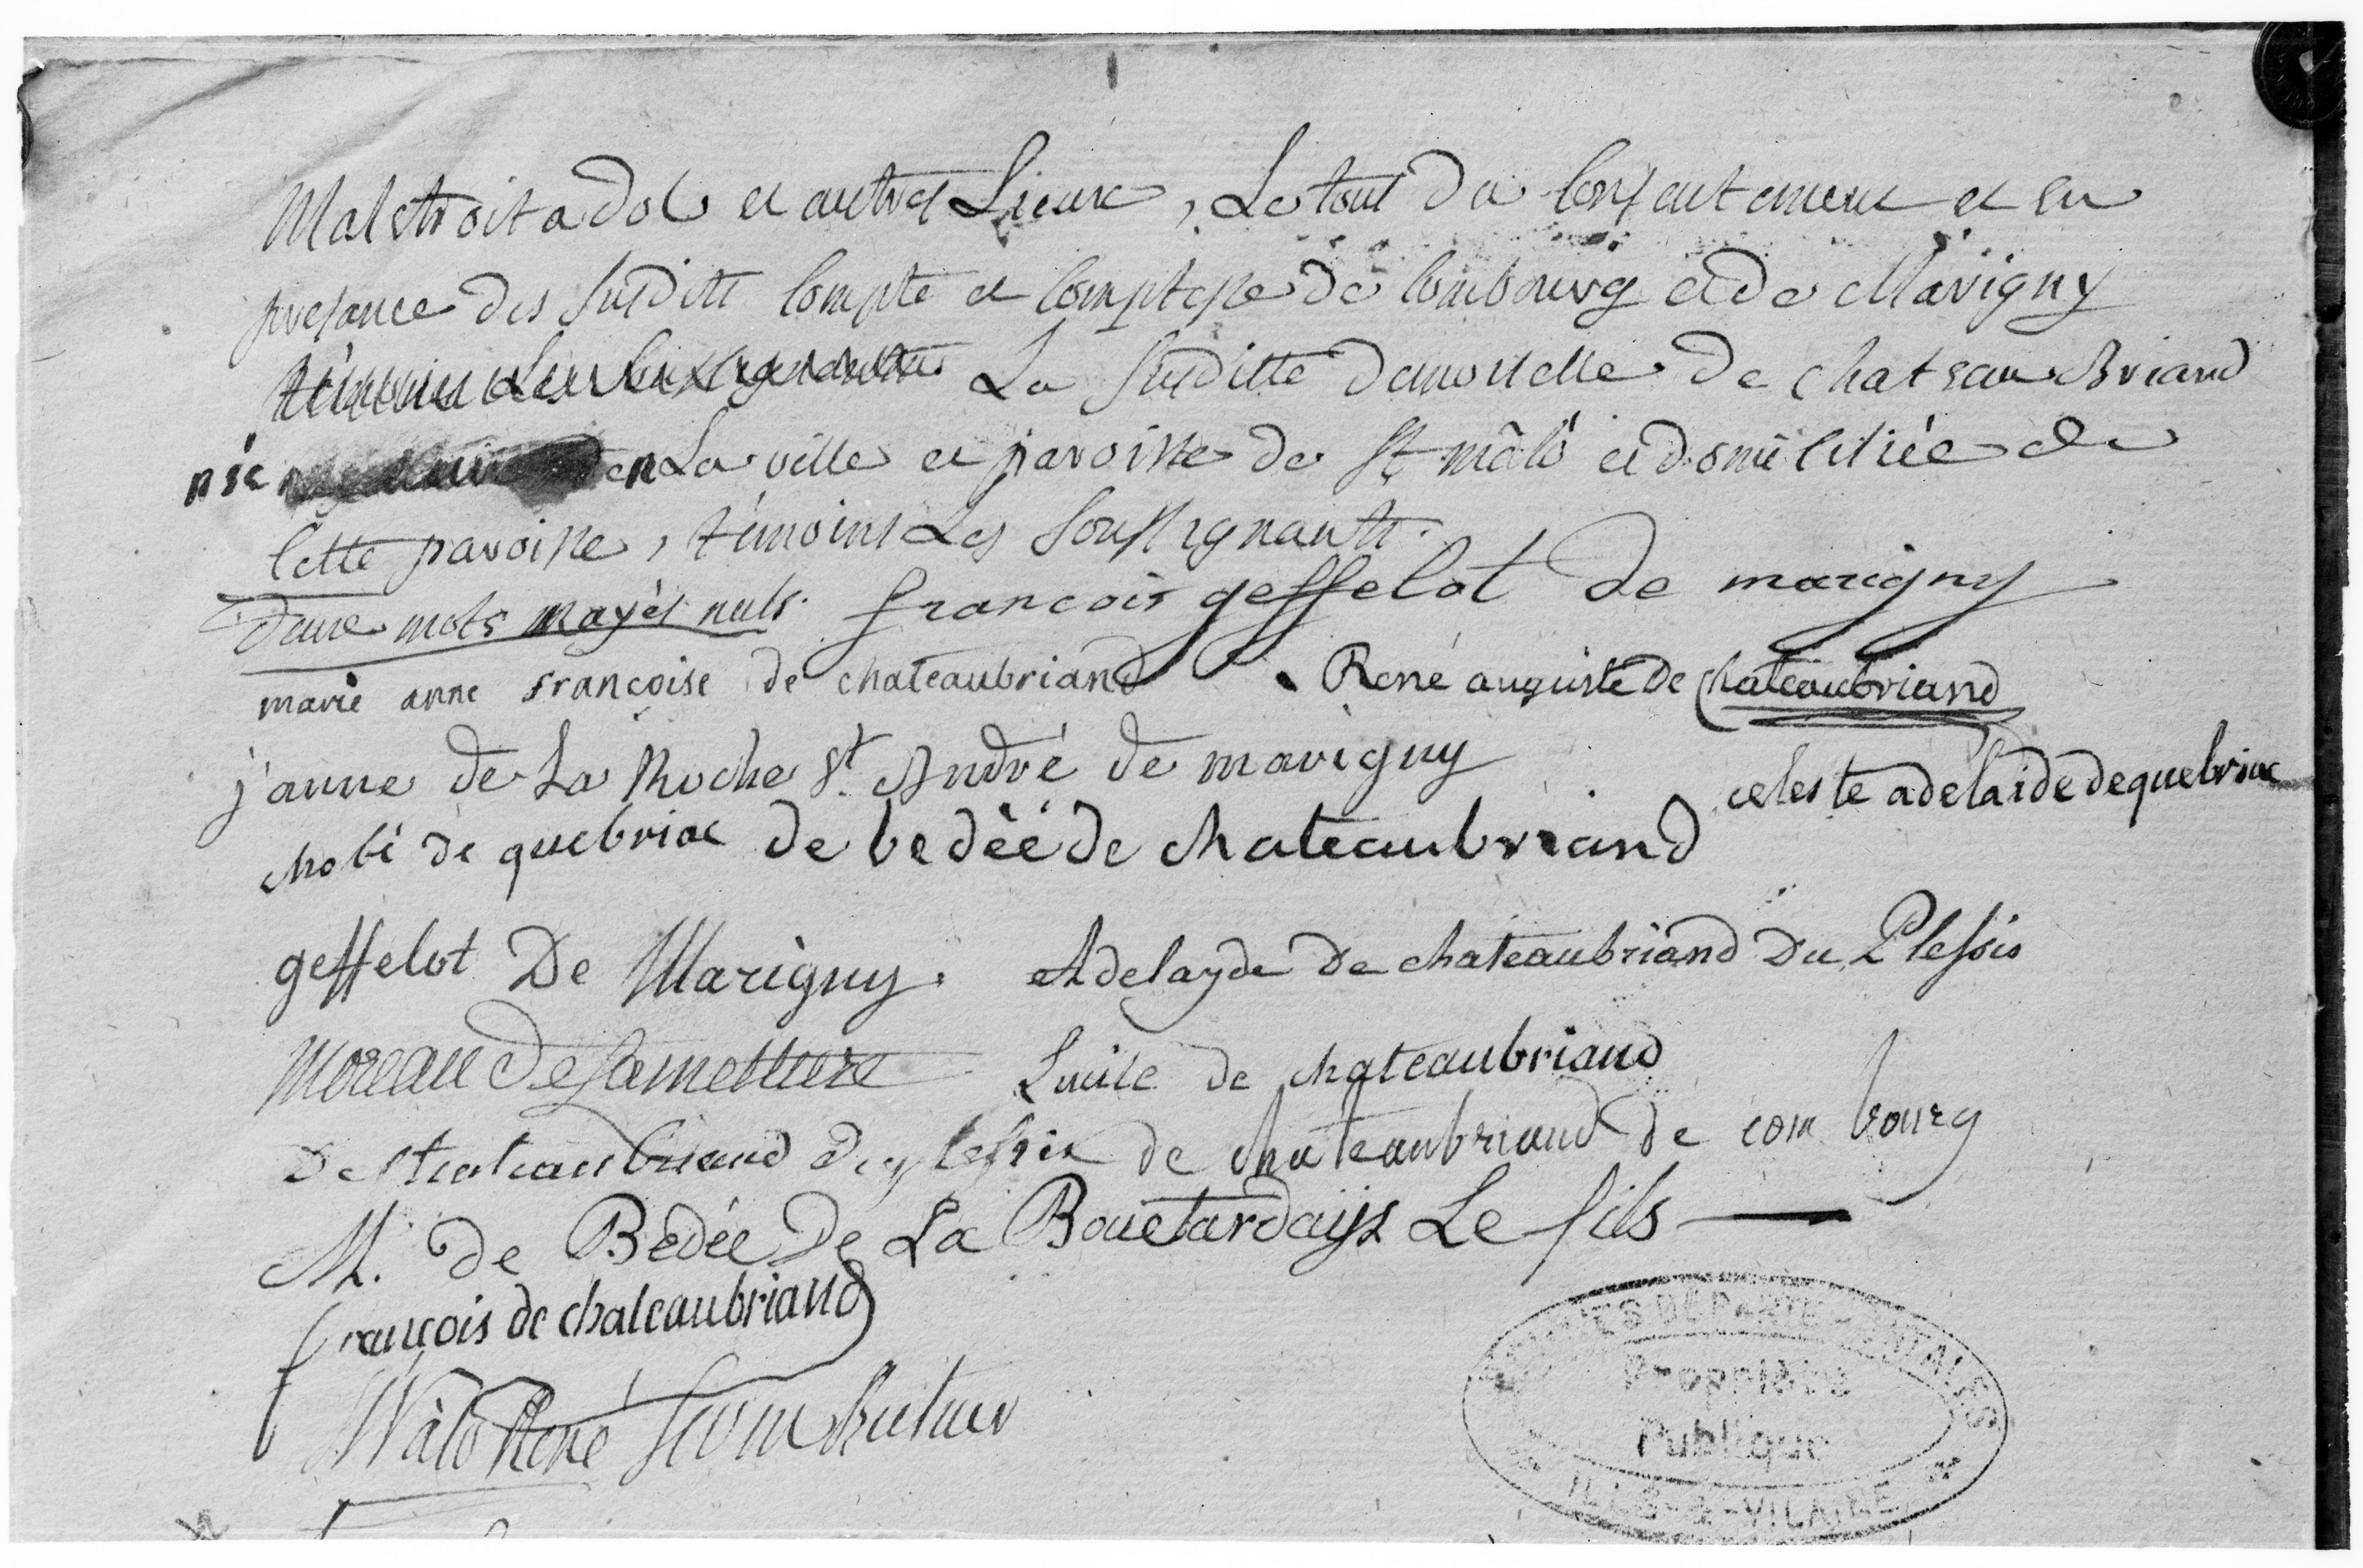 Malstroit a dol et autres Lieux, Le tout du Consentement et en
presance des susdits Compte et Comptesse de Combourg et de Marigny
La susditte demoiselle de chateau Briand
née en La ville et paroisse de St malo et domiciliée de
Cette paroisse, témoins Les soussignants.
deux mots rayés nuls. françois geffelot de marigny
marie anne françoise de chateaubriand René auguste de chateaubriand
j'anne de La Roche St André de marigny
celeste adelaide de quebriac
de quebriac de bedèé de chateaubriand
geffelot De Marigny. Adelayde De chateaubriand Du Plessis
Moreau De Lamettiere Lucile de chateaubriand
De Chateaubriand du plessix de chateaubriand de combourg
M. de Bedée De La Bouetardays Le fils
françois de chateaubriand
Malo René
ARCHIVES DÉPARTEMENTALES
Propriété
Publique
ILLE-&-VILAINE